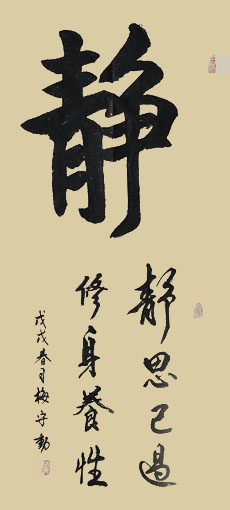 静
静思己過
修身養性
戊戌春月梅守勤